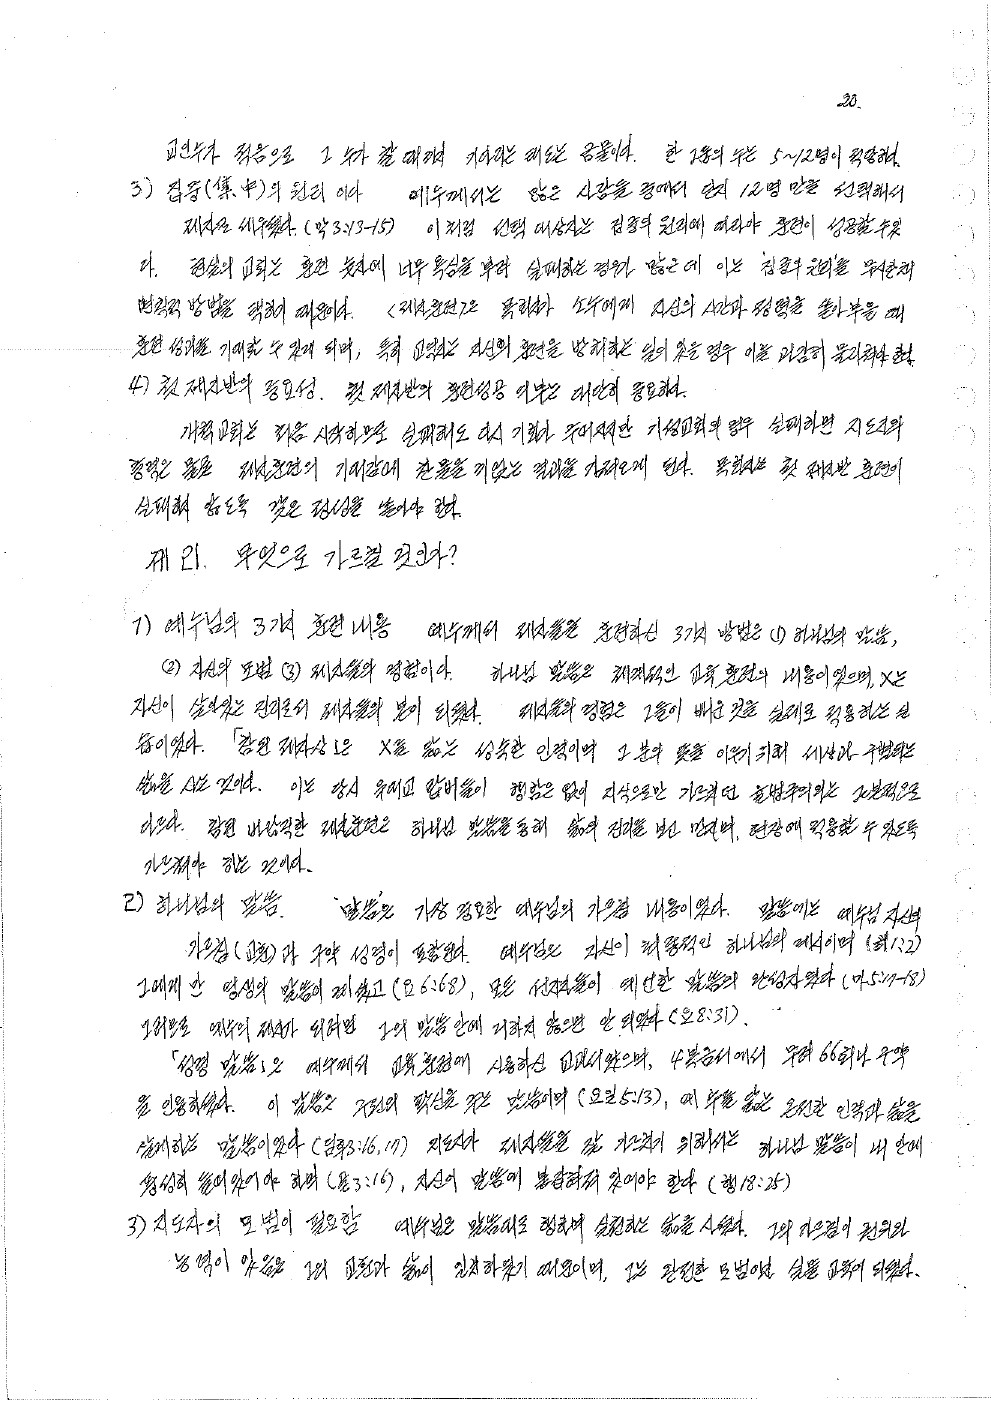 20.
교인수가 적음으로 그 수가 찰 때까지 기다리는 태도는 금물이다. 한 그룹의 수는 5~12명이 적당하다.
3) 집중(集中)의 원리 이다 예수께서는 많은 사람들 중에서 단지 12명 만을 선택해서
제자로 세우셨다. (막3:13-15) 이처럼 선택 대상자는 집중의 원리에 따라야 훈련이 성공할 수 있
다. 현실의 교회는 훈련 숫자에 너무 욕심을 부려 실패하는 경우가 많은데 이는 '집중의 원리'를 무시한채
면적적 방법을 택하기 때문이다. <제자훈련>은 목회자가 소수에게 자신의 시간과 정력을 쏟아부을 때
훈련 성과를 기대할 수 있게 되며, 특히 교역자는 자신의 훈련을 방해하는 일이 있을 경우 이를 과감히 물리쳐야 한다.
4) 첫 제자반의 중요성. 첫 제자반의 훈련성공 여부는 대단히 중요하다.
개척교회는 처음 시작하므로 실패해도 다시 기회가 주어지지만 기성교회의 경우 실패하면 지도자의
능력은 물론 제자훈련의 기대감에 찬물을 끼얹는 결과를 가져오게 된다. 목회자는 첫 제자반 훈련이
실패하지 않도록 갖은 정성을 쏟아야 한다.
제 2. 무엇으로 가르칠 것인가?
1) 예수님의 3가지 훈련 내용 예수께서 제자들을 훈련하신 3가지 방법은 (1) 하나님의 말씀,
(2) 자신의 모범 (3) 제자들의 경험이다. 하나님 말씀은 체계적인 교육 훈련의 내용이었으며, X는
자신이 살아있는 진리로서 제자들의 본이 되셨다. 제자들의 경험은 그들이 배운 것을 실제로 적용하는 실
습이었다. 「참된 제자상」은 X를 닮는 성숙한 인격이며 그 분의 뜻을 이루기 위해 세상과 구별되는
삶을 사는 것이다. 이는 당시 유대교 랍비들이 행함은 없이 지식으로만 가르쳤던 율법주의와는 근본적으로
다르다. 참된 바람직한 제자훈련은 하나님 말씀을 통해 삶의 진리를 보고 만지며, 현장에 적용할 수 있도록
가르쳐야 하는 것이다.
2) 하나님의 말씀. '말씀'은 가장 중요한 예수님의 가르침 내용이었다. 말씀에는 예수님 자신의
가르침(교훈)과 구약 성경이 포함된다. 예수님은 자신이 최종적인 하나님의 메시이며 (히1:2)
그에게만 영생의 말씀이 계셨고 (요6:68), 모든 선지자들이 예언한 말씀의 완성자였다 (마5:17-18)
그러므로 예수의 제자가 되려면 그의 말씀 안에 거하지 않으면 안 되었다 (요8:31).
「성경 말씀」은 예수께서 교육 훈련에 사용하신 교과서였으며, 4복음서에서 무려 66회나 구약
을 인용하셨다. 이 말씀은 구원의 확신을 주는 말씀이며 (요일5:13), 예수를 닮는 온전한 인격과 삶을
실제하는 말씀이었다 (딤후3:16,17) 지도자가 제자들을 잘 가르치기 위해서는 하나님 말씀이 내 안에
풍성히 들어있어야 하며 (골3:16), 자신이 말씀에 붙잡혀져 있어야 한다 (행18:25)
3) 지도자의 모범이 필요함 예수님은 말씀대로 행하며 실천하는 삶을 사셨다. 그의 가르침이 권위와
능력이 있음은 그의 교훈과 삶이 일치하였기 때문이며, 그는 완전한 모범이던 실물 교육이 되셨다.